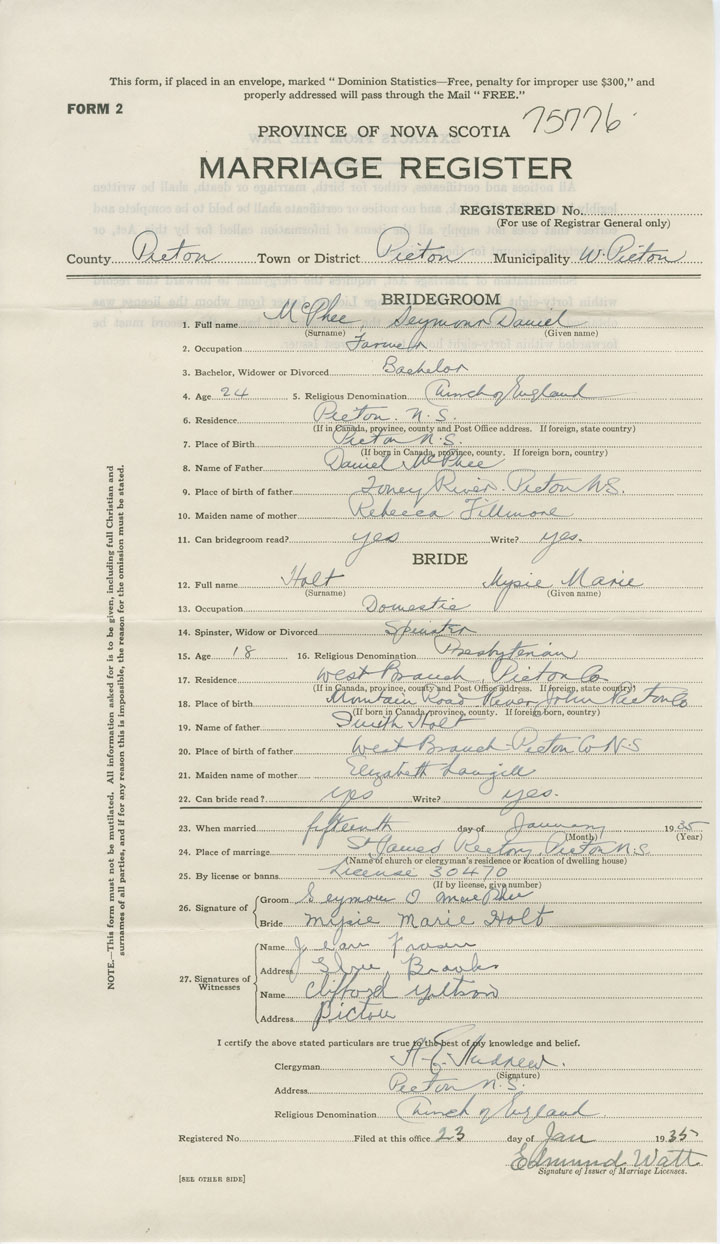 This form, if placed in an envelope, marked “ Dominion Statistics—Free, penalty for improper use $300,” and
properly addressed will pass through the Mail “ FREE.”
FORM 2
75776
PROVINCE OF NOVA SCOTIA
MARRIAGE REGISTER
REGISTERED No.
(For use of Registrar General only)
County Pictou Town or District Pictou Municipality W. Pictou
BRIDEGROOM
1. Full name McPhee, Seymour Daniel
(Surname) (Given name)
2. Occupation Farmer
3. Bachelor, Widower or Divorced Bachelor
4. Age 24 5. Religious Denomination Church of England
6. Residence Pictou. N.S.
(If in Canada, province, county and Post Office address. If foreign, state country)
7. Place of Birth Pictou N.S.
(If born in Canada, province, county. If foreign born, country)
8. Name of Father Daniel McPhee
9. Place of birth of father Toney River. Pictou N.S.
10. Maiden name of mother Rebecca Fillmore
11. Can bridegroom read? yes Write? yes.
BRIDE
12. Full name Holt Mysie Marie
(Surname) (Given name)
13. Occupation Domestic
14. Spinster, Widow or Divorced Spinster
15. Age 18 16. Religious Denomination Presbyterian
17. Residence West Branch, Pictou Co
(If in Canada, province, county and Post Office address. If foreign, state country)
18. Place of birth Mountain Road River John Pictou Co
(If born in Canada, province, county. If foreign born, country)
19. Name of father Holt
20. Place of birth of father West Branch Pictou Co N.S
21. Maiden name of mother Elizabeth Langill
22. Can bride read? yes Write? yes.
23. When married fifteenth day of January 1935
(Month) (Year)
24. Place of marriage St James Rectory, Pictou N.S.
(Name of church or clergyman's residence or location of dwelling house)
25. By license or banns License 30470
(If by license, give number)
26. Signature of
Groom Seymour D MacPhee
Bride Mysie Marie Holt
27. Signatures of Witnesses
Name Jean Fraser
Address
Name Clifford
Address Pictou
I certify the above stated particulars are true to the best of my knowledge and belief.
Clergyman H. E. Andrew.
(Signature)
Address Pictou N.S.
Religious Denomination Church of England
Registered No. Filed at this office 23 day of Jan 1935
Edmund Watt
Signature of Issuer of Marriage Licenses.
[SEE OTHER SIDE]
NOTE.—This form must not be mutilated. All information asked for is to be given, including full Christian and
surnames of all parties, and if for any reason this is impossible, the reason for the omission must be stated.